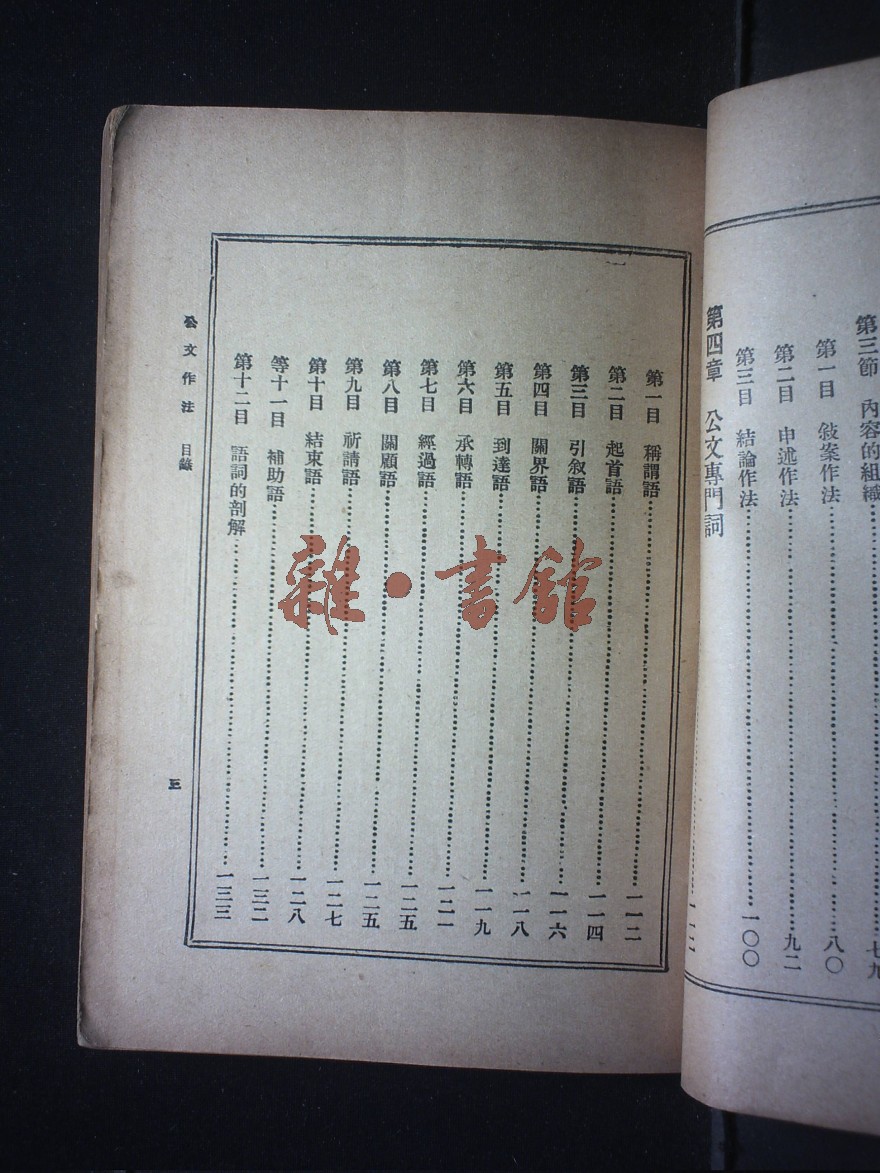 第三節　內容的組織……七九
第一目　敍案作法……八〇
第二目　申述作法……九二
第三目　結論作法……一〇〇
第四章　公文專門詞……一一二
第一目　稱謂語……一一二
第二目　起首語……一一四
第三目　引敍語……一一六
第四目　關界語……一一八
第五目　到達語……一一九
第六目　承轉語……一二一
第七目　經過語……一二五
第八目　關顧語……一二五
第九目　祈請語……一二七
第十目　結束語……一二八
等十一目　補助語……一三二
第十二目　語詞的剖解……一三三
公文作法　目錄
三
雜·書館